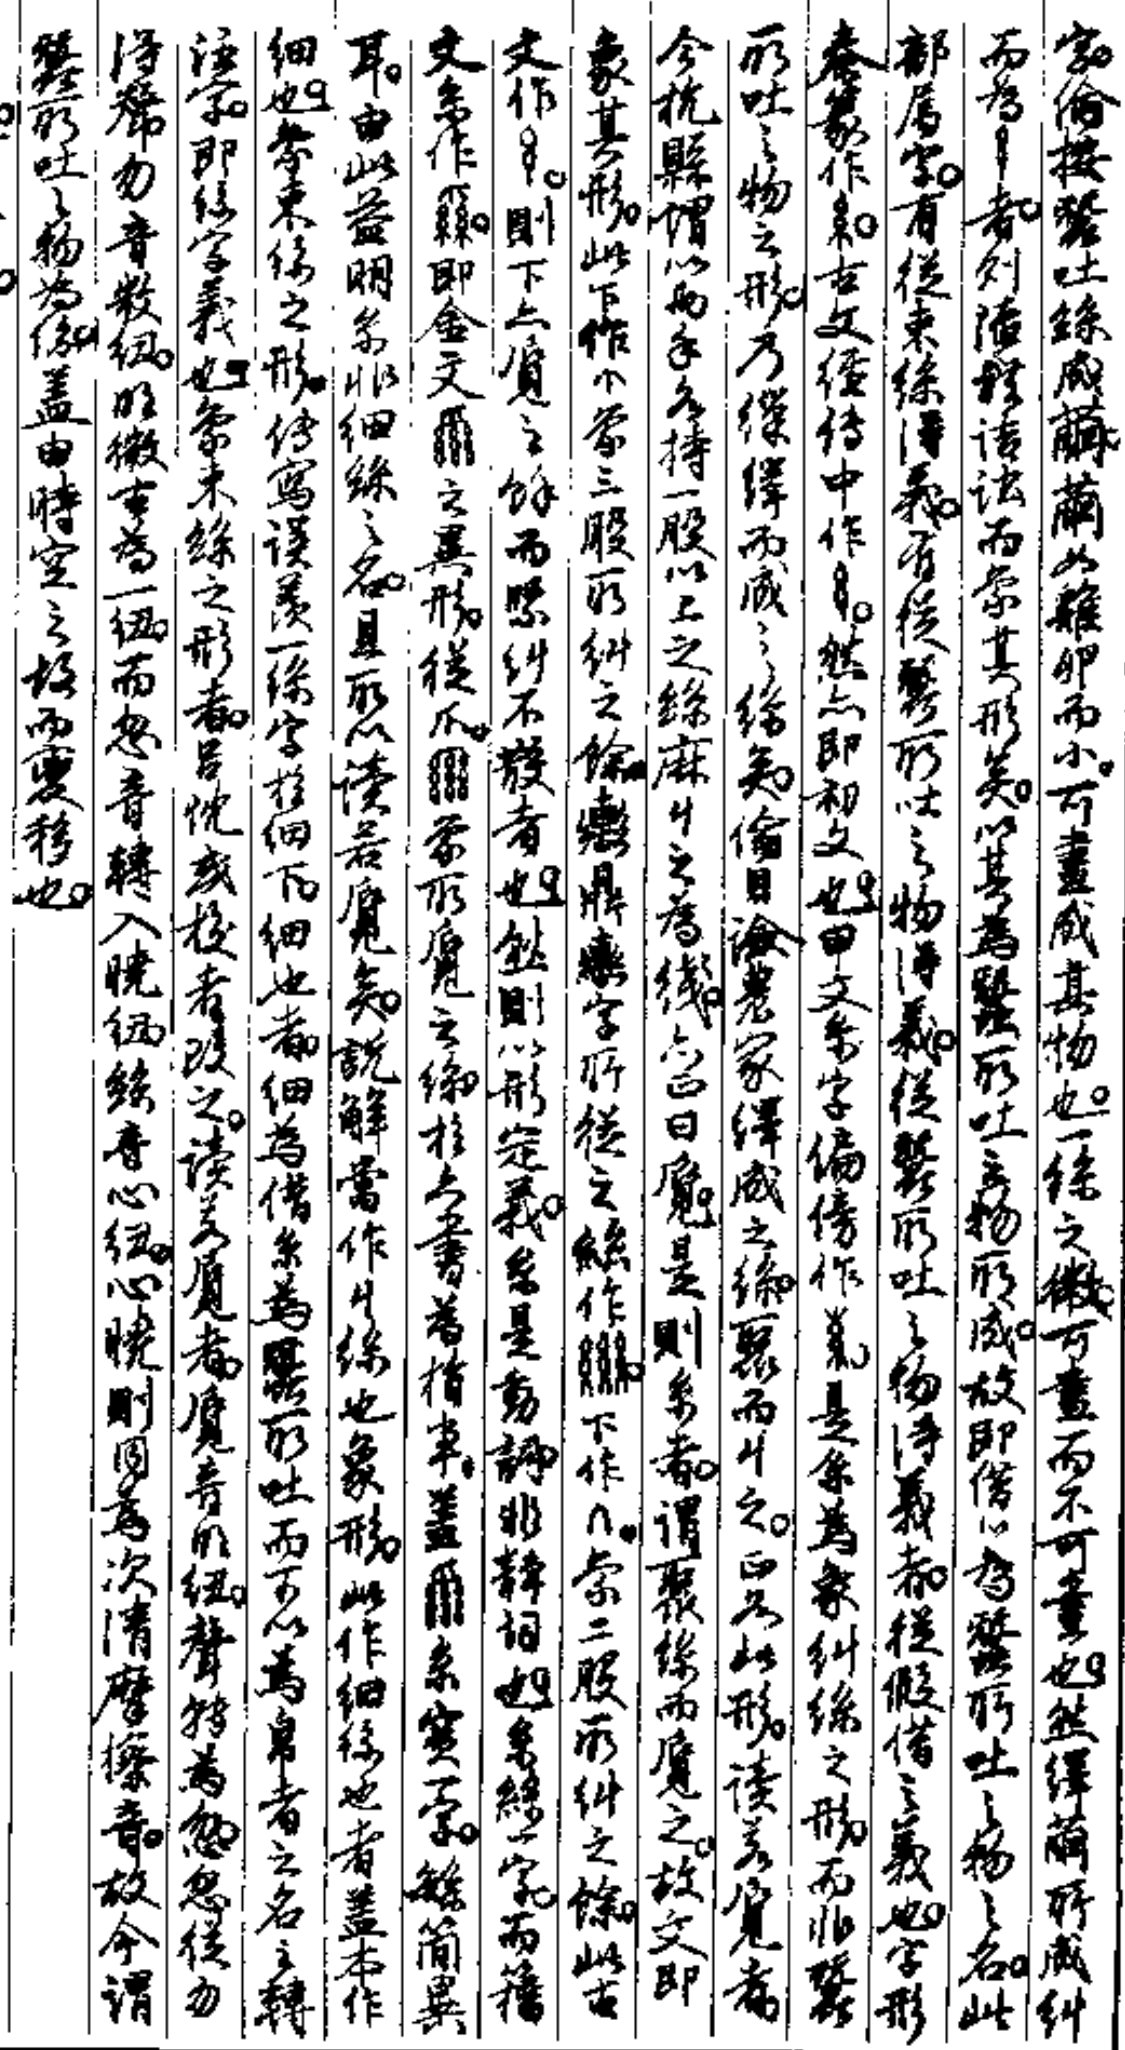 字。倫按蠶吐絲成繭。繭如雞卵而小。可畫成其物也。一絲之微。可畫而不可畫也。然繹繭所成糾
而為者。則隨體詰詘而象其形矣。以其為蠶所吐之物所成。故即借以為蠶所吐之物之名。此
部屬字。有從束絲得義。有從蠶所吐之物得義。從蠶所吐之物得義者。從假借之義也。字形
秦篆作糸。古文經傳中作。然亦即初文也。甲文糸字偏傍作是糸為象糾絲之形。而非蠶
所吐之物之形。乃繅繹而成之絲矣。倫目驗農家繹成之絲。聚而丩之。正如此形。讀若覛者
今杭縣謂以兩手各持一股以上之絲麻丩之為綫。亦正曰覛。是則糸者。謂聚絲而覛之。故文即
象其形。此下作小象三股所糾之餘。字所從之作下作象二股所糾之餘。此古
文作。則下亦覛之餘而緊糾不散者也。然則以形定義。糸是動詞非靜詞也。糸絲一字。而籀
文糸作。即金文之異形。從爪。象所覛之絲。於六書為指事。蓋糸實一字。緐簡異
耳。由此益明糸非細絲之名。且所以讀若覛矣。說解當作丩絲也。象形。此作細絲也者。蓋本作
細也。象束絲之形。傳寫誤羨一絲字於細下。細也者。細為借糸為蠶所吐而可以為帛者之名之轉
注字。即絲字義也。象束絲之形者。呂忱或校者改之。讀若覛者。覛音明紐。聲轉為忽。忽從勿
得聲。勿音敷紐。明微古為一紐。而忽音轉入曉紐。絲音心紐。心曉則同為次清摩擦音。故今謂
蠶所吐之物為絲。蓋由時空之故而變移也。